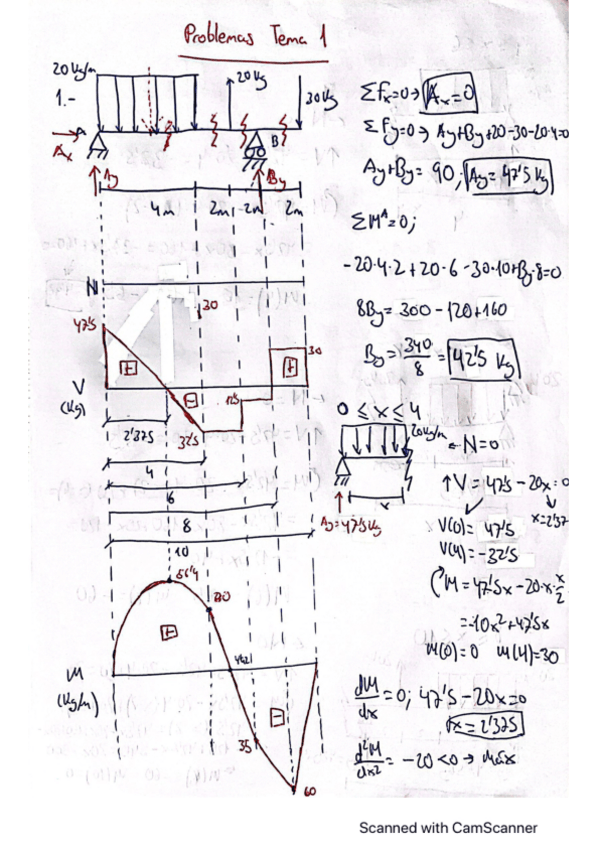 Problemas Tema 1
20 Kg/m
1.-
20 Kg
30 Kg
A
Ax
B
Ay
By
4m
2m
2m
2m
ΣFx=0 → Ax=0
ΣFy=0 → Ay+By+20-30-20·4=0
Ay+By = 90; Ay = 47'5 Kg
ΣM^A=0;
-20·4·2+20·6-30·10+By·8=0
8By = 300-120+160
By = 340/8 = 42'5 Kg
N
30
47'5
+
-
30
+
V
(Kg)
2'375
4
6
8
10
0 ≤ x ≤ 4
20 Kg/m
x
Ay=47'5 Kg
← N=0
↑V = 47'5 - 20x = 0
V(0) = 47'5
V(4) = -32'5
M = 47'5x - 20·x·x/2
= -10x²+47'5x
M(0)=0 M(4)=30
56'4
+
M
(Kg/m)
-
35
60
dM/dx = 0; 47'5-20x=0
x=2'375
d²M/dx² = -20 <0 → Máx
Scanned with CamScanner